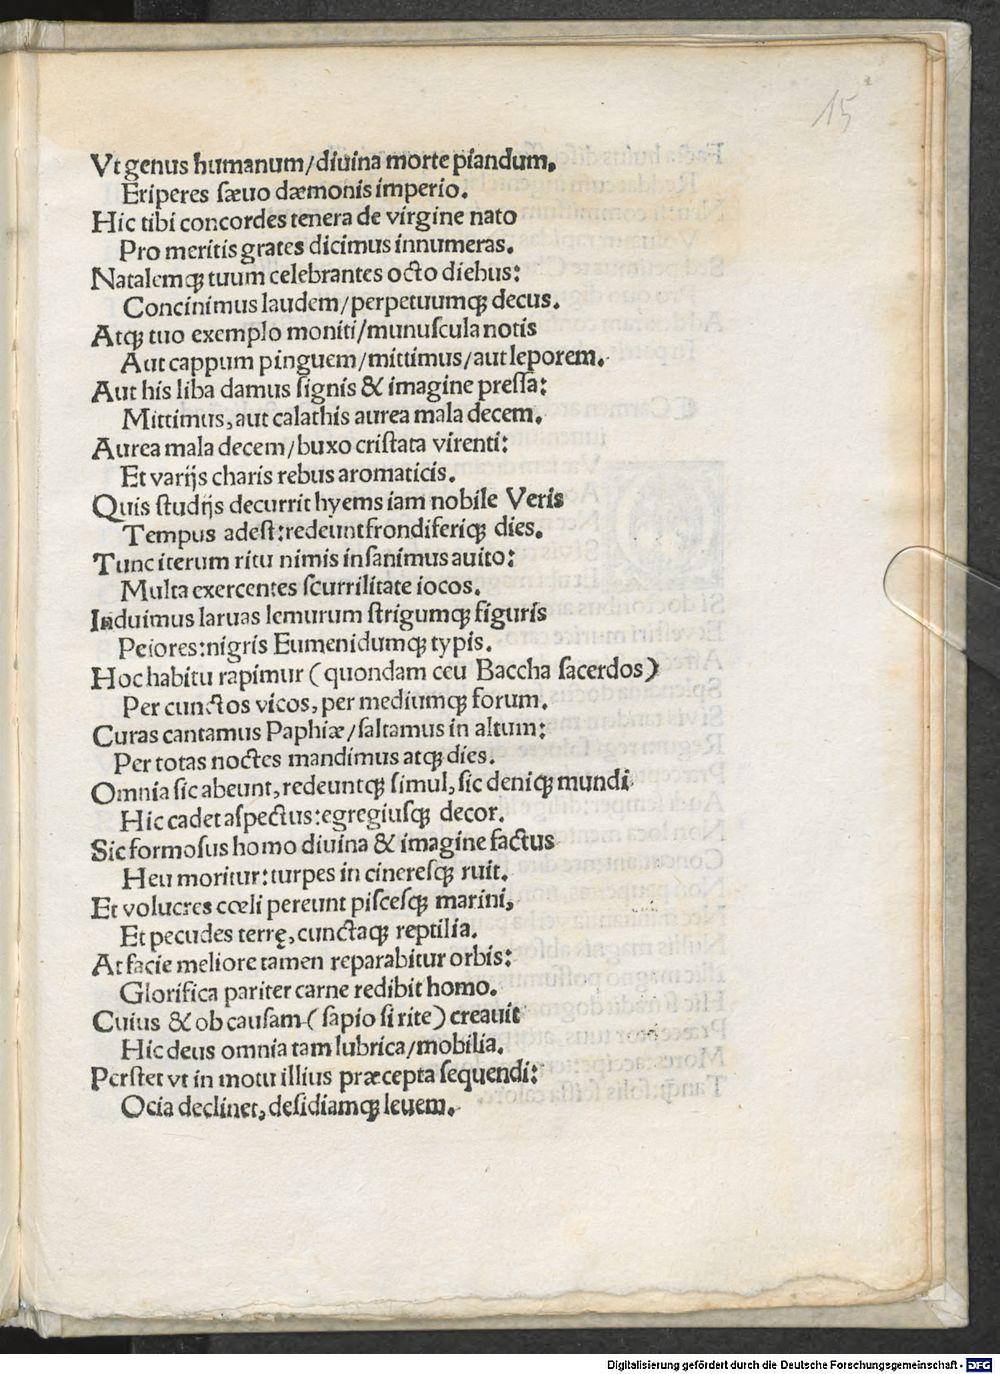 15
Vt genus humanum/diuina morte piandum.
Eriperes sæuo dæmonis imperio.
Hic tibi concordes tenera de virgine nato
Pro meritis grates dicimus innumeras.
Natalemqꝫ tuum celebrantes octo diebus:
Concinimus laudem/perpetuumqꝫ decus.
Atqꝫ tuo exemplo moniti/munuſcula notis
Aut cappum pinguem/mittimus/aut leporem.
Aut his liba damus ſignis & imagine preſſa:
Mittimus, aut calathis aurea mala decem.
Aurea mala decem/buxo criſtata virenti:
Et varijs charis rebus aromaticis.
Quis ſtudijs decurrit hyems iam nobile Veris
Tempus adeſt: redeunt frondiferiqꝫ dies.
Tunc iterum ritu nimis inſanimus auito:
Multa exercentes ſcurrilitate iocos.
Induimus laruas lemurum ſtrigumqꝫ figuris
Peiores: nigris Eumenidumqꝫ typis.
Hoc habitu rapimur (quondam ceu Baccha ſacerdos)
Per cunctos vicos, per mediumqꝫ forum.
Curas cantamus Paphiæ/ſaltamus in altum:
Per totas noctes mandimus atqꝫ dies.
Omnia ſic abeunt, redeuntqꝫ ſimul, ſic deniqꝫ mundi
Hic cadet aſpectus: egregiuſqꝫ decor.
Sic formoſus homo diuina & imagine factus
Heu moritur: turpes in cinereſqꝫ ruit.
Et volucres cœli pereunt piſceſqꝫ marini,
Et pecudes terrę, cunctaqꝫ reptilia.
At facie meliore tamen reparabitur orbis:
Glorifica pariter carne redibit homo.
Cuius & ob cauſam (ſapio ſi rite) creauit
Hic deus omnia tam lubrica/mobilia.
Perſtet vt in motu illius præcepta ſequendi:
Ocia declinet, deſidiamqꝫ leuem.
Digitalisierung gefördert durch die Deutsche Forschungsgemeinschaft - DFG